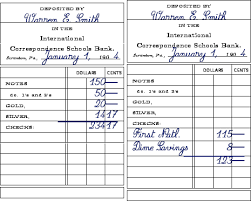 DEPOSITED BY
Warren E. Smith
IN THE
International
Correspondence Schools Bank.
Scranton, Pa., January 1, 1904
DOLLARS CENTS
NOTES 150—
do. 1's and 2's 50—
GOLD, 20—
SILVER, 14 17
CHECKS: 234 17
DEPOSITED BY
Warren E. Smith
IN THE
International
Correspondence Schools Bank.
Scranton, Pa., January 1, 1904
DOLLARS CENTS
NOTES
do. 1's and 2's
GOLD,
SILVER,
CHECKS:
First Natl. 115—
Dime Savings 8—
123—